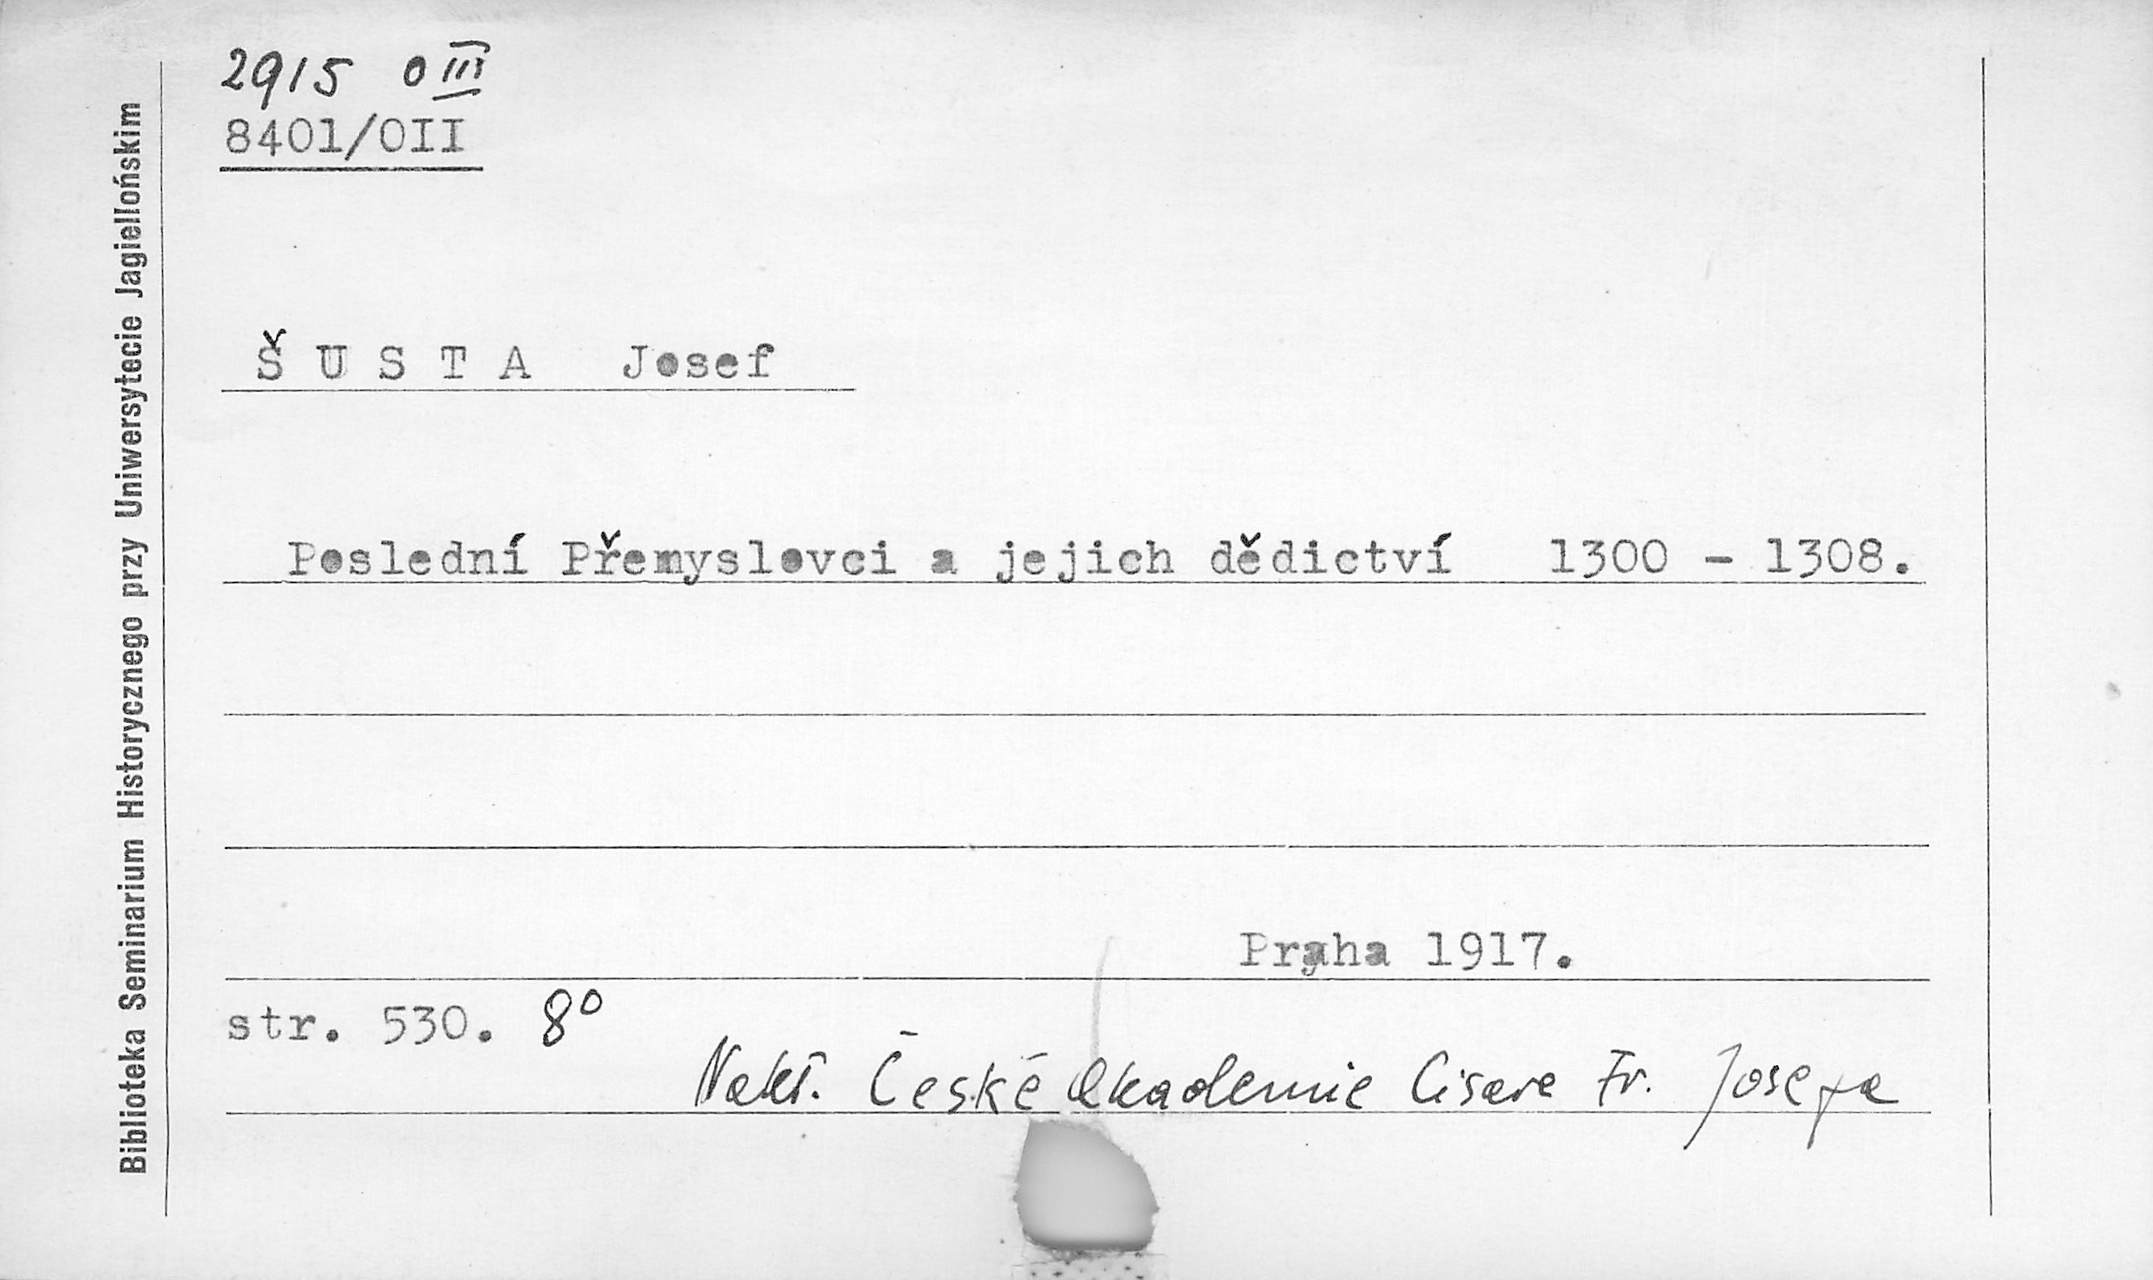 2915 O III
8401/OII
Š U S T A Josef
Poslední Přemyslovci a jejich dědictví 1300 - 1308.
Praha 1917.
str. 530. 8º
Nakł. České Akademie Cisare Fr. Josefa
Biblioteka Seminarium Historycznego przy Uniwersytecie Jagiellońskim